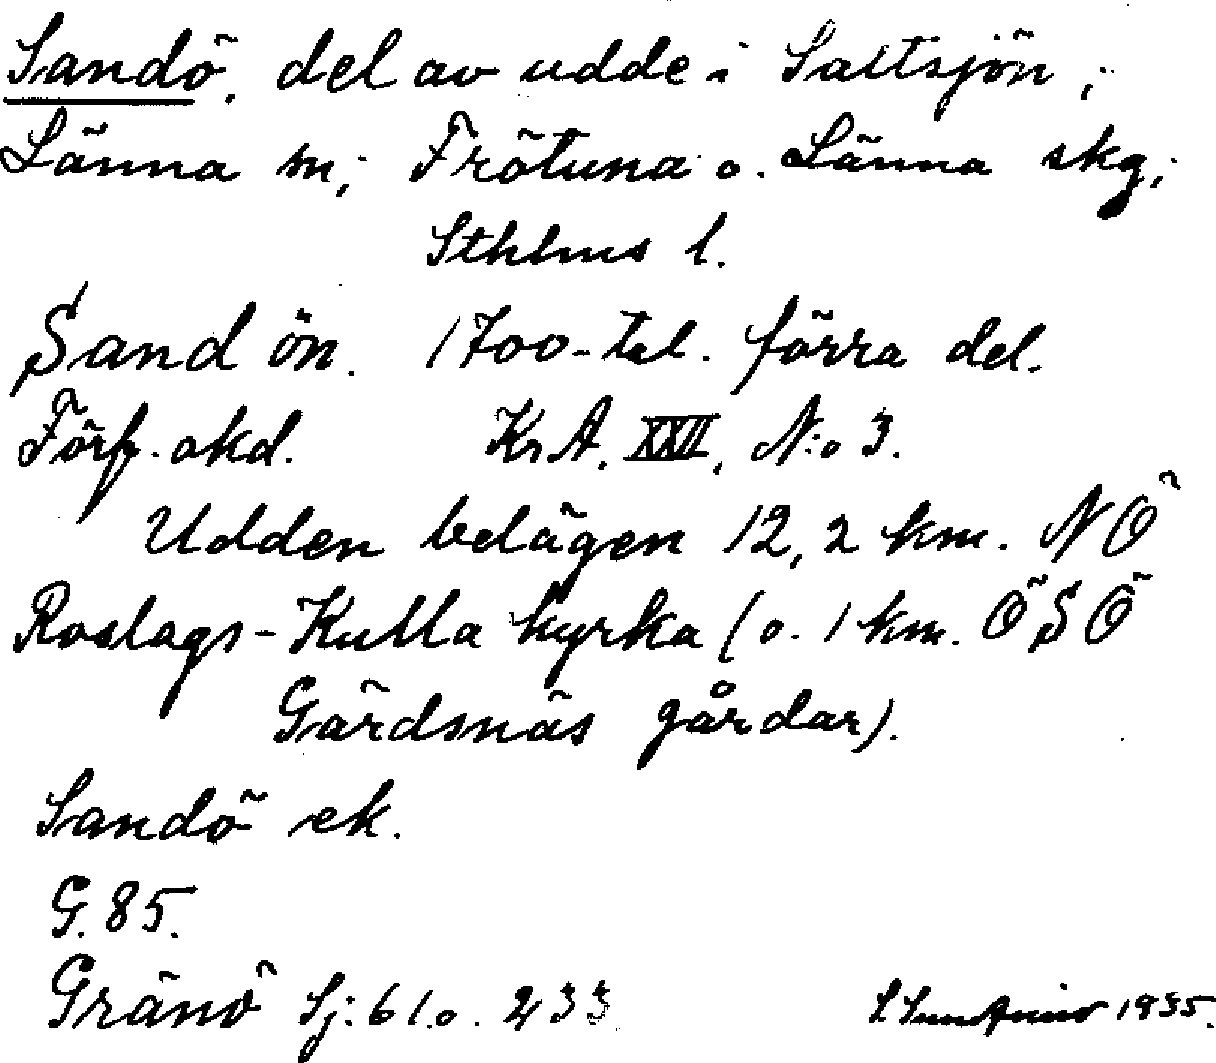 Sandö, del av udde i Saltsjön;
Länna sn; Frötuna o. Länna skg;
Sthlms l.
Sand ön. 1700-tal. förra del.
Förf. okd. KrA. XXII, N:o 3.
Udden belägen 12,2 km. NÖ
Roslags-Kulla kyrka (o. 1 km. ÖSÖ
Gärdsnäs gårdar).
Sandö ek.
G. 85.
Gränö Sj: 61 o. 233
1935.